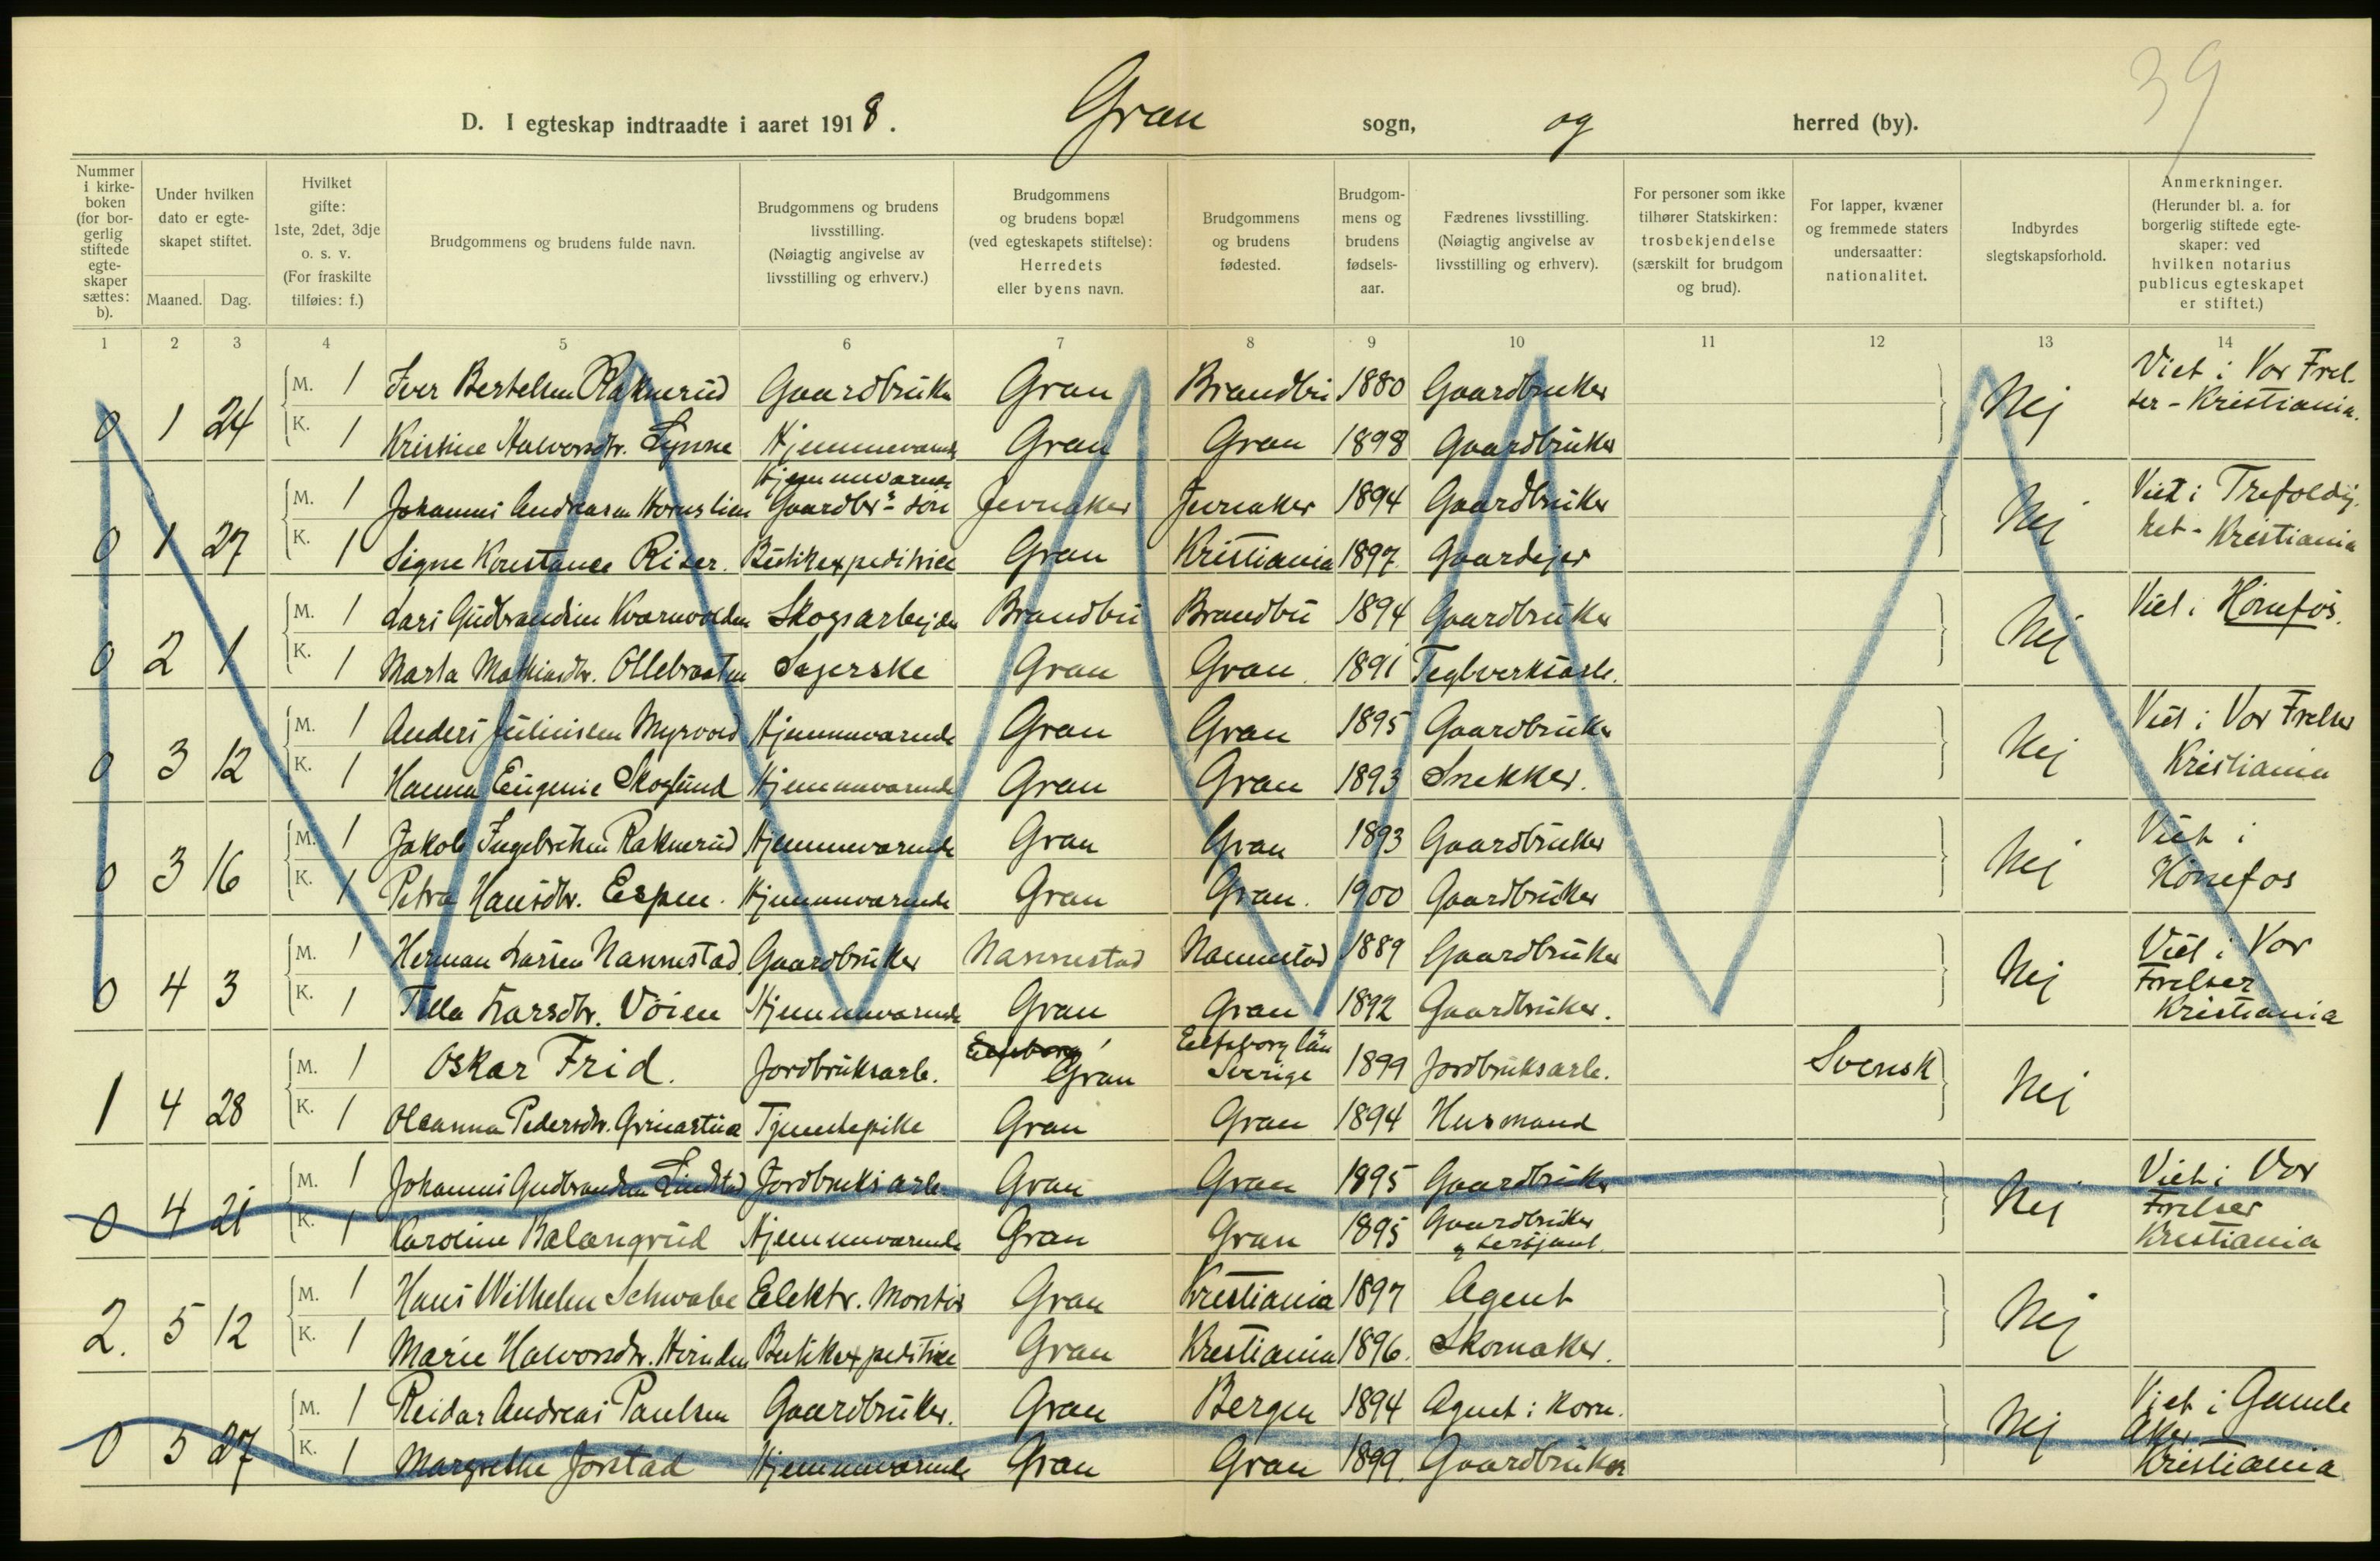 39
D. I egteskap indtraadte i aaret 1918. Gran sogn, og herred (by).
Nummer i kirke-boken (for bor-gerlig stiftede egte-skaper sættes: b).
Under hvilken dato er egte-skapet stiftet.
Maaned. Dag.
Hvilket gifte: 1ste, 2det, 3dje o. s. v. (For fraskilte tilføies: f.)
Brudgommens og brudens fulde navn.
Brudgommens og brudens livsstilling. (Nøiagtig angivelse av livsstilling og erhverv.)
Brudgommens og brudens bopæl (ved egteskapets stiftelse): Herredets eller byens navn.
Brudgommens og brudens fødested.
Brudgom-mens og brudens fødsels-aar.
Fædrenes livsstilling. (Nøiagtig angivelse av livsstilling og erhverv).
For personer som ikke tilhører Statskirken: trosbekjendelse (særskilt for brudgom og brud).
For lapper, kvæner og fremmede staters undersaatter: nationalitet.
Indbyrdes slegtskapsforhold.
Anmerkninger. (Herunder bl. a. for borgerlig stiftede egte-skaper: ved hvilken notarius publicus egteskapet er stiftet.)
1 2 3 4 5 6 7 8 9 10 11 12 13 14
0 1 24 M. 1 Iver Bertelsen Raknerud Gaardbruker Gran Brandbu 1880 Gaardbruker Nej Viet i Vor Frel-ser - Kristiania.
K. 1 Kristine Halvorsdtr. Lynne Hjemmeværende Gran Gran 1898 Gaardbruker
0 1 27 M. 1 Johannes Andreasen Hornslien Hjemmeværende Gaardbr.s søn Jevnaker Jevnaker 1894 Gaardbruker Nej Viet i Trefoldig-het - Kristiania
K. 1 Signe Konstance Riser. Butikexpeditrice Gran Kristiania 1897 Gaardejer
0 2 1 M. 1 Lars Gudbrandsen Kværnvolden Skogsarbejder Brandbu Brandbu 1894 Gaardbruker Nej Viet i Hønefos.
K. 1 Marta Mathiasdtr. Ollebraaten Syerske Gran Gran. 1891 Teglverksarb.
0 3 12 M. 1 Anders Juliussen Myrvold Hjemmeværende Gran Gran 1895 Gaardbruker Nej Viet i Vor Frelser Kristiania
K. 1 Hanna Eugenie Skoglund Hjemmeværende Gran Gran 1893 Snekker.
0 3 16 M. 1 Jakob Ingebretsen Raknerud Hjemmeværende Gran Gran 1893 Gaardbruker Nej Viet i Hønefos
K. 1 Petra Hansdtr. Espen. Hjemmeværende Gran Gran. 1900 Gaardbruker
0 4 3 M. 1 Herman Larsen Nannestad Gaardbruker Nannestad Nannestad 1889 Gaardbruker Nej Viet i Vor Frelser Kristiania
K. 1 Tilla Larsdtr. Vøien Hjemmeværende Gran Gran 1892 Gaardbruker.
1 4 28 M. 1 Oskar Frid. Jordbruksarb. Gran Eelfsborg län Sverige 1899 Jordbruksarb. Svensk Nej
K. 1 Oleanna Pedersdtr. Tjenestepike Gran Gran 1894 Husmand
0 4 21 M. 1 Johannes Gudbrandsen Lindstad Jordbruksarb. Gran Gran 1895 Gaardbruker Nej Viet i Vor Frelser Kristiania
K. 1 Karoline Balangrud Hjemmeværende Gran Gran 1895 Gaardbruker og sersjant.
2. 5 12 M. 1 Hans Wilhelm Schwabe Elektr. Montør Gran Kristiania 1897 Agent Nej
K. 1 Marie Halvorsdtr. Butikexpeditrice Gran Kristiania 1896. Skomaker.
0 5 27 M. 1 Reidar Andreas Paulsen Gaardbruker. Gran Bergen 1894 Agent i Korn. Nej Viet i Gamle Aker Kristiania
K. 1 Margrethe Jorstad Hjemmeværende Gran Gran 1899. Gaardbruker